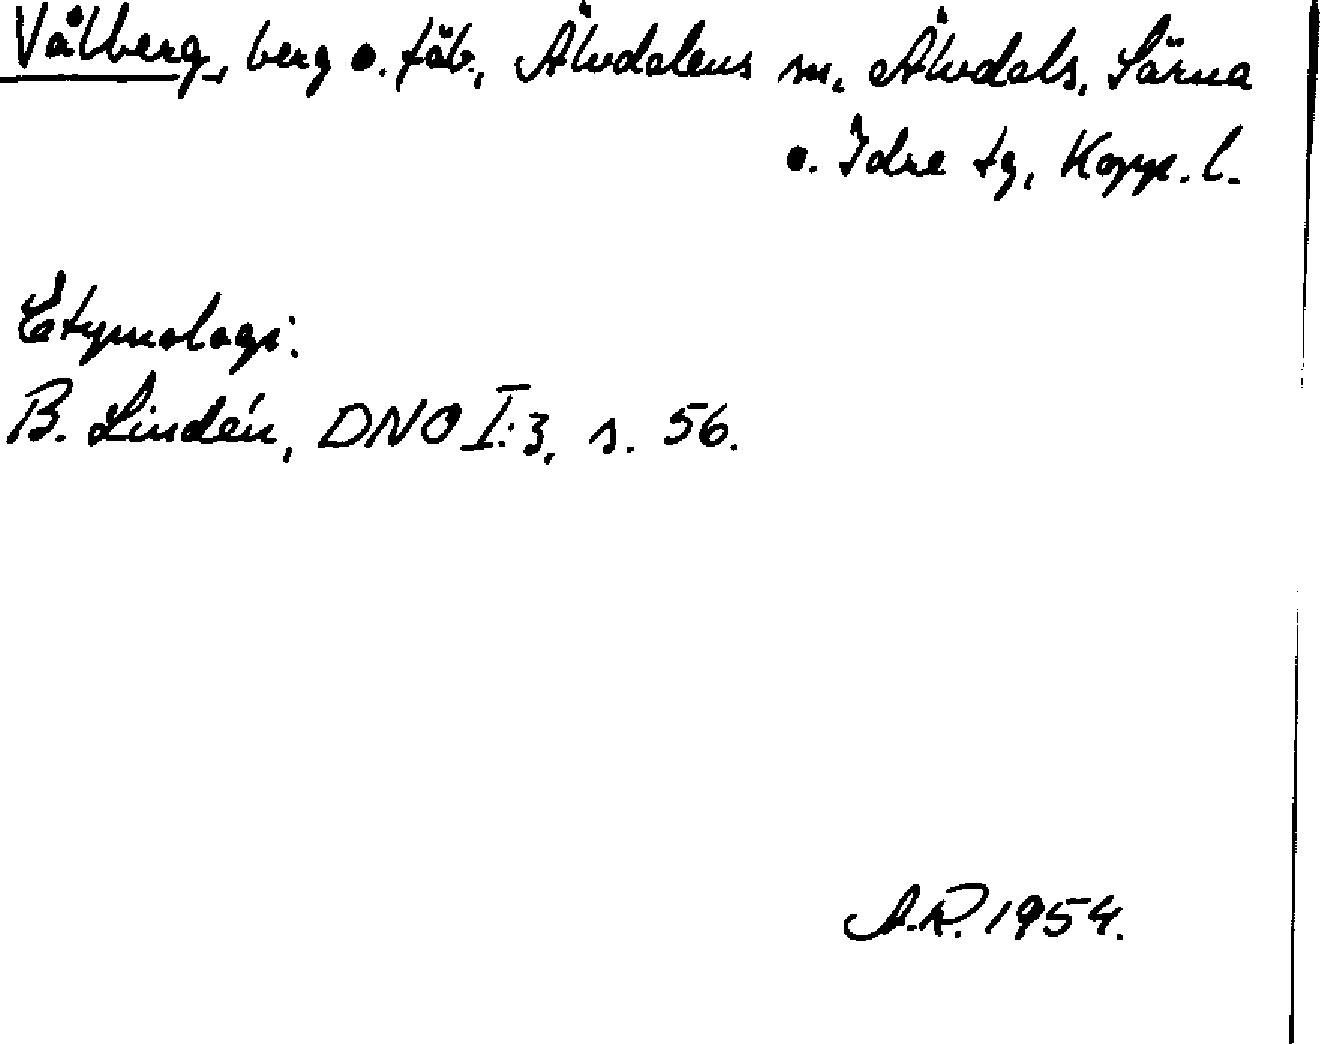 Vålberg, berg o. fäb., Älvdalens sn, Älvdals, Särna
o. Idre tg, Kopp. l.
Etymologi:
B. Lindén, DNO I:3, s. 56.
A.R. 1954.